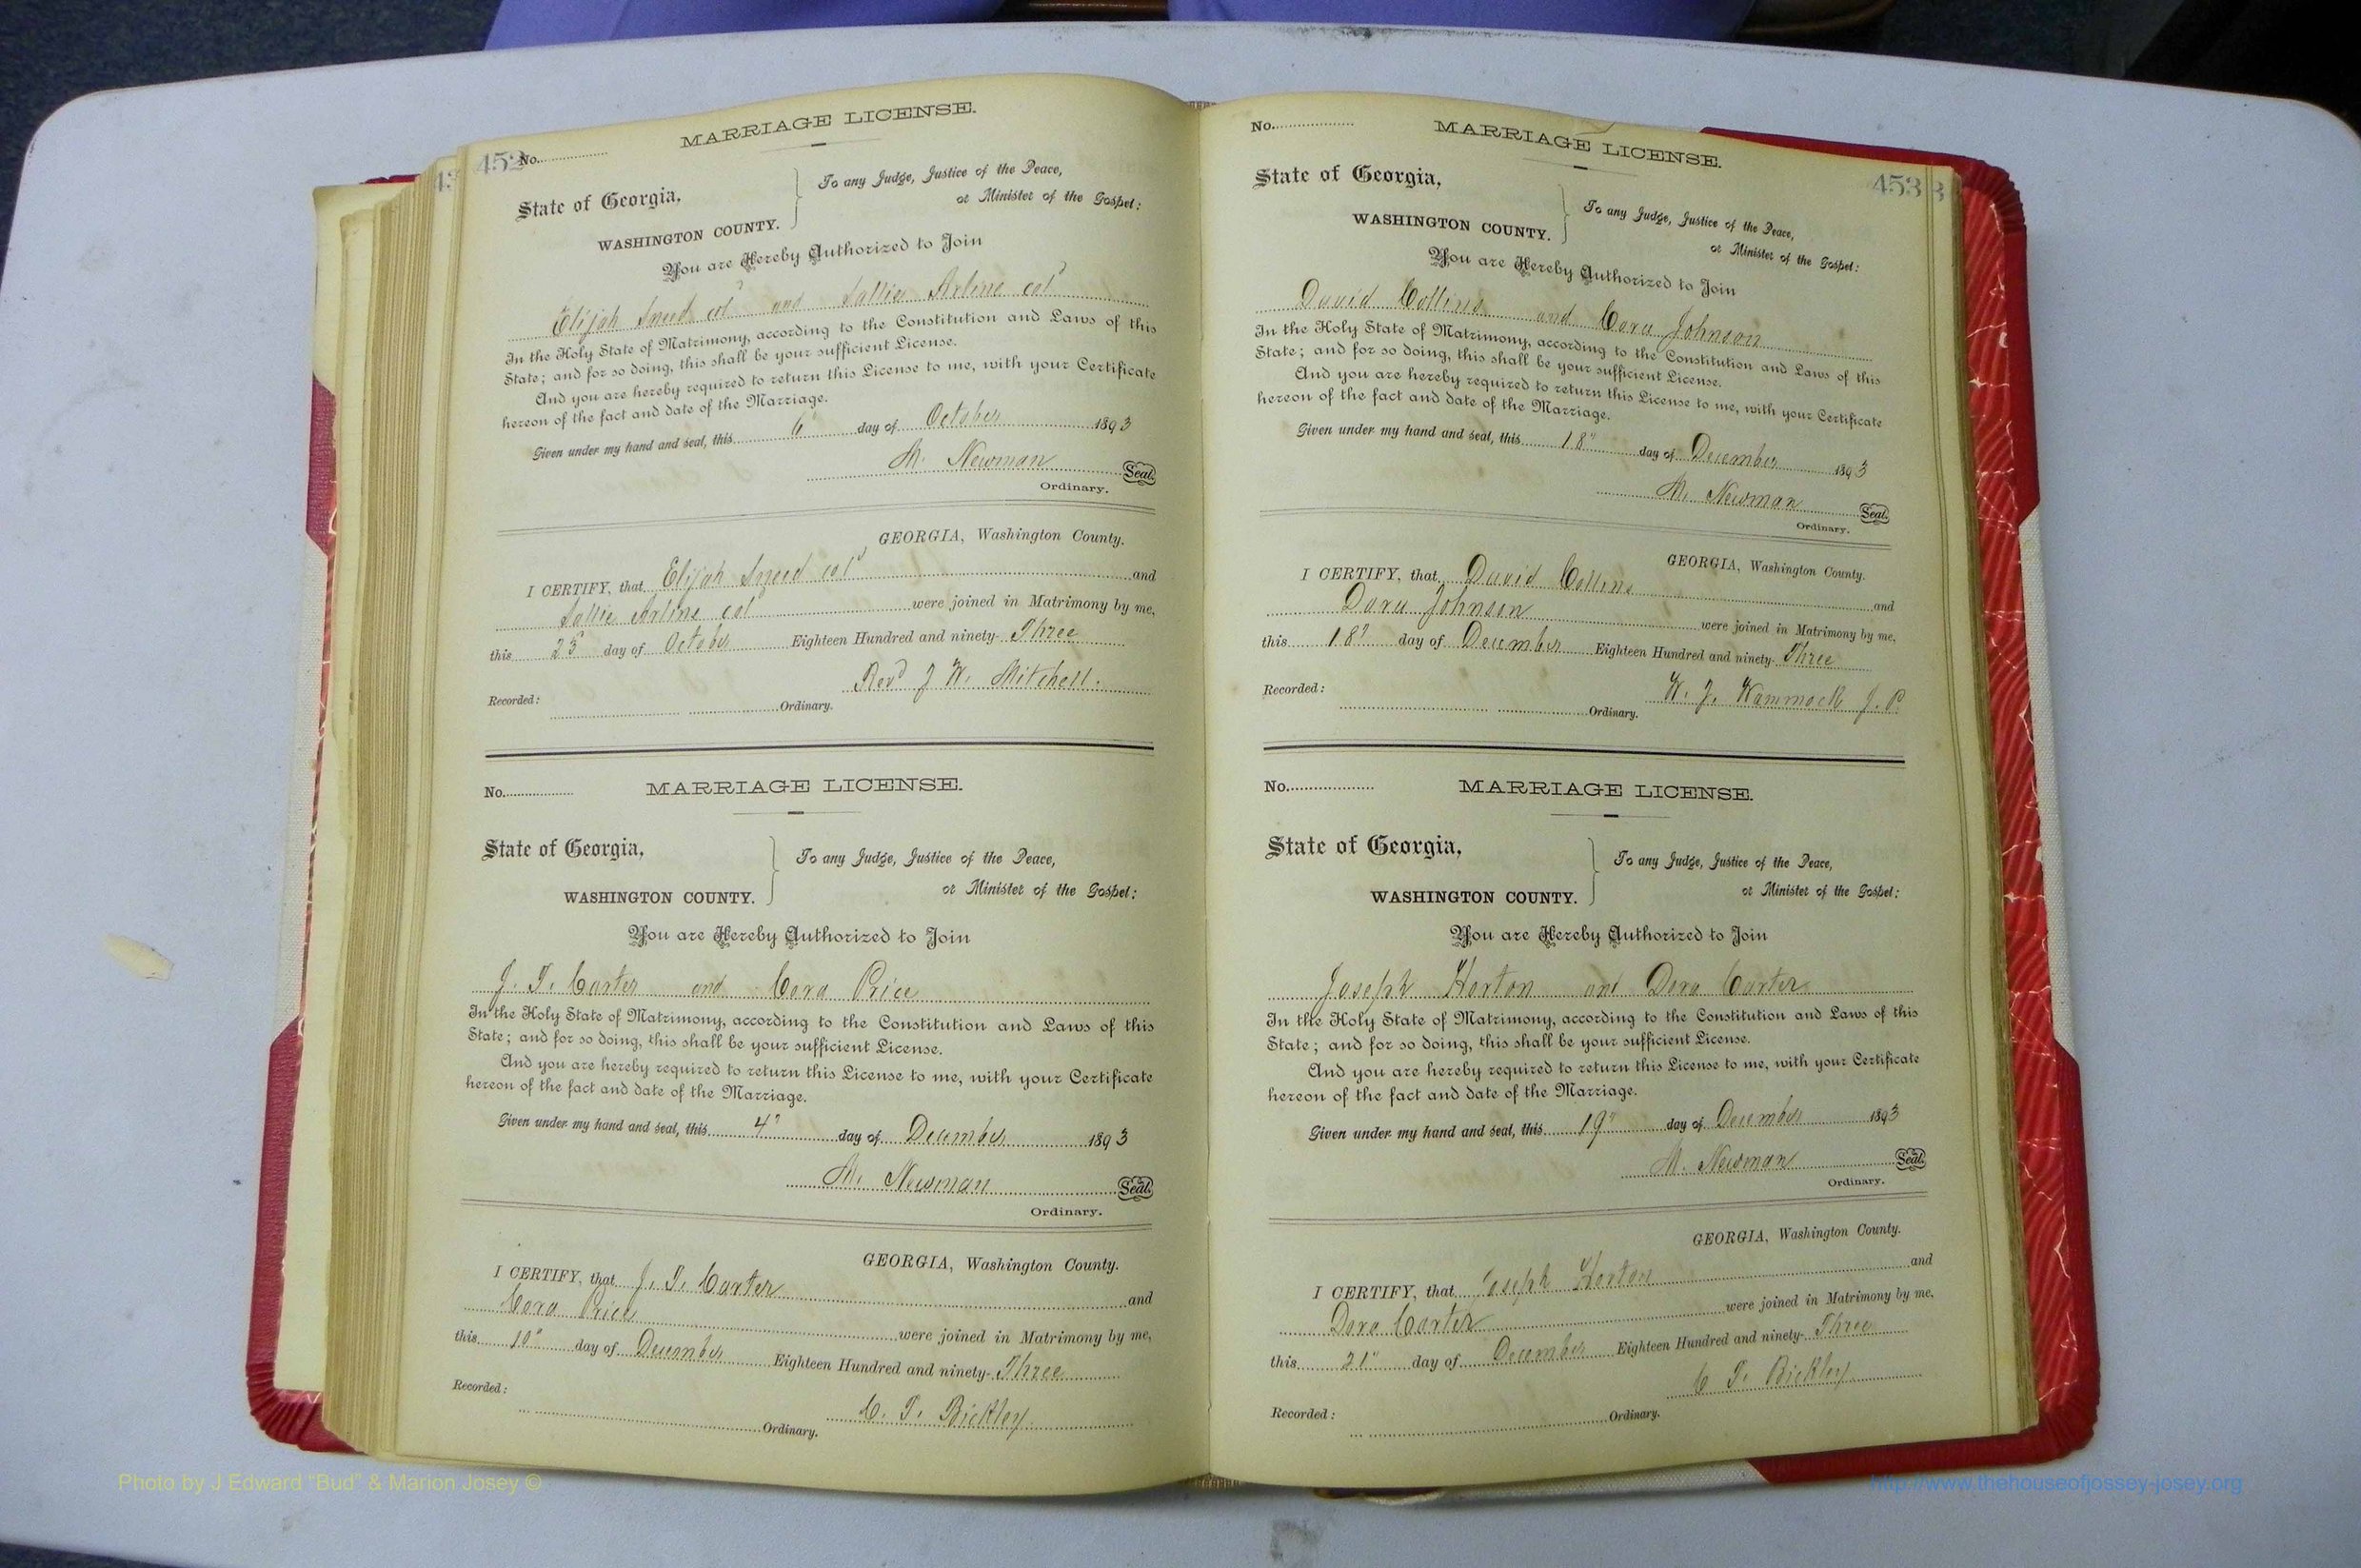 452
No.
MARRIAGE LICENSE.
State of Georgia,
WASHINGTON COUNTY.
To any Judge, Justice of the Peace,
or Minister of the Gospel:
You are Hereby Authorized to Join
Elijah Sneed col and Sallie Arline col
In the Holy State of Matrimony, according to the Constitution and Laws of this
State; and for so doing, this shall be your sufficient License.
And you are hereby required to return this License to me, with your Certificate
hereon of the fact and date of the Marriage.
Given under my hand and seal, this 6" day of October 1893
M. Newman Seal.
Ordinary.
GEORGIA, Washington County.
I CERTIFY, that Elijah Sneed col and
Sallie Arline col were joined in Matrimony by me,
this day of October Eighteen Hundred and ninety-Three
Revd J W. Mitchell.
Recorded: Ordinary.
No.
MARRIAGE LICENSE.
State of Georgia,
WASHINGTON COUNTY.
To any Judge, Justice of the Peace,
or Minister of the Gospel:
You are Hereby Authorized to Join
J. T. Carter and Cora Price
In the Holy State of Matrimony, according to the Constitution and Laws of this
State; and for so doing, this shall be your sufficient License.
And you are hereby required to return this License to me, with your Certificate
hereon of the fact and date of the Marriage.
Given under my hand and seal, this 4" day of December 1893
M. Newman Seal.
Ordinary.
GEORGIA, Washington County.
I CERTIFY, that J. T. Carter and
Cora Price were joined in Matrimony by me,
this 10" day of December Eighteen Hundred and ninety-Three
C. T. Bickley
Recorded: Ordinary.
No.
MARRIAGE LICENSE.
453
State of Georgia,
WASHINGTON COUNTY.
To any Judge, Justice of the Peace,
or Minister of the Gospel:
You are Hereby Authorized to Join
David Collins and Cora Johnson
In the Holy State of Matrimony, according to the Constitution and Laws of this
State; and for so doing, this shall be your sufficient License.
And you are hereby required to return this License to me, with your Certificate
hereon of the fact and date of the Marriage.
Given under my hand and seal, this 18" day of December 1893
M. Newman Seal.
Ordinary.
GEORGIA, Washington County.
I CERTIFY, that David Collins and
Dora Johnson were joined in Matrimony by me,
this 18" day of December Eighteen Hundred and ninety-Three
W. J. Wammock J. P.
Recorded: Ordinary.
No.
MARRIAGE LICENSE.
State of Georgia,
WASHINGTON COUNTY.
To any Judge, Justice of the Peace,
or Minister of the Gospel:
You are Hereby Authorized to Join
Joseph Horton and Dora Carter
In the Holy State of Matrimony, according to the Constitution and Laws of this
State; and for so doing, this shall be your sufficient License.
And you are hereby required to return this License to me, with your Certificate
hereon of the fact and date of the Marriage.
Given under my hand and seal, this 19" day of December 1893
M. Newman Seal.
Ordinary.
GEORGIA, Washington County.
I CERTIFY, that Joseph Horton and
Dora Carter were joined in Matrimony by me,
this 21" day of December Eighteen Hundred and ninety-Three
C T. Bickley
Recorded: Ordinary.
Photo by J Edward "Bud" & Marion Josey ©
http://www.thehouseofjossey-josey.org